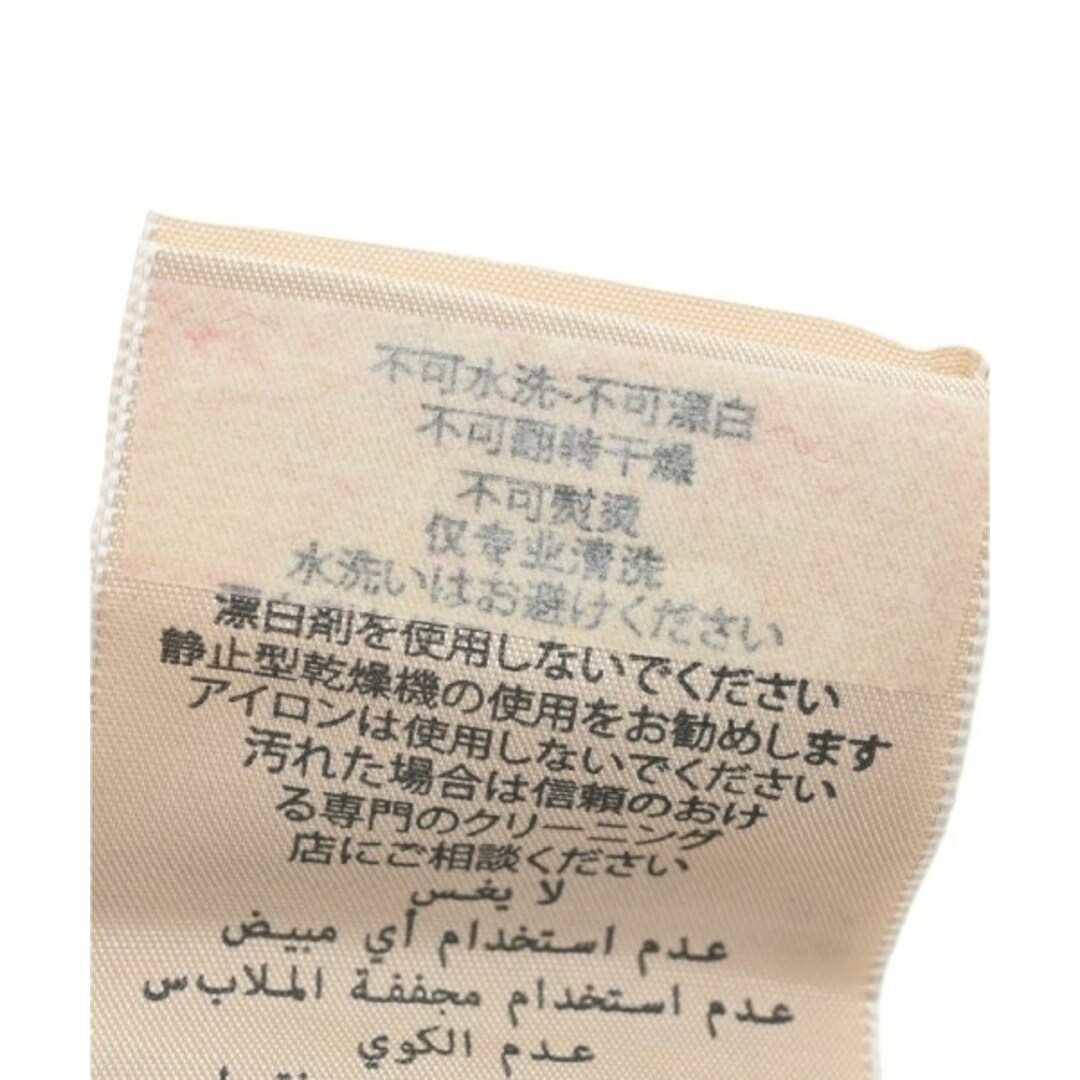 不可水洗-不可漂白
不可翻转干燥
不可熨烫
仅专业清洗
水洗いはお避けください
漂白剤を使用しないでください
静止型乾燥機の使用をお勧めします
アイロンは使用しないでください
汚れた場合は信頼のおけ
る専門のクリーニング
店にご相談ください
لا يغسل
عدم استخدام أي مبيض
عدم استخدام مجففة الملابس
عدم الكوي